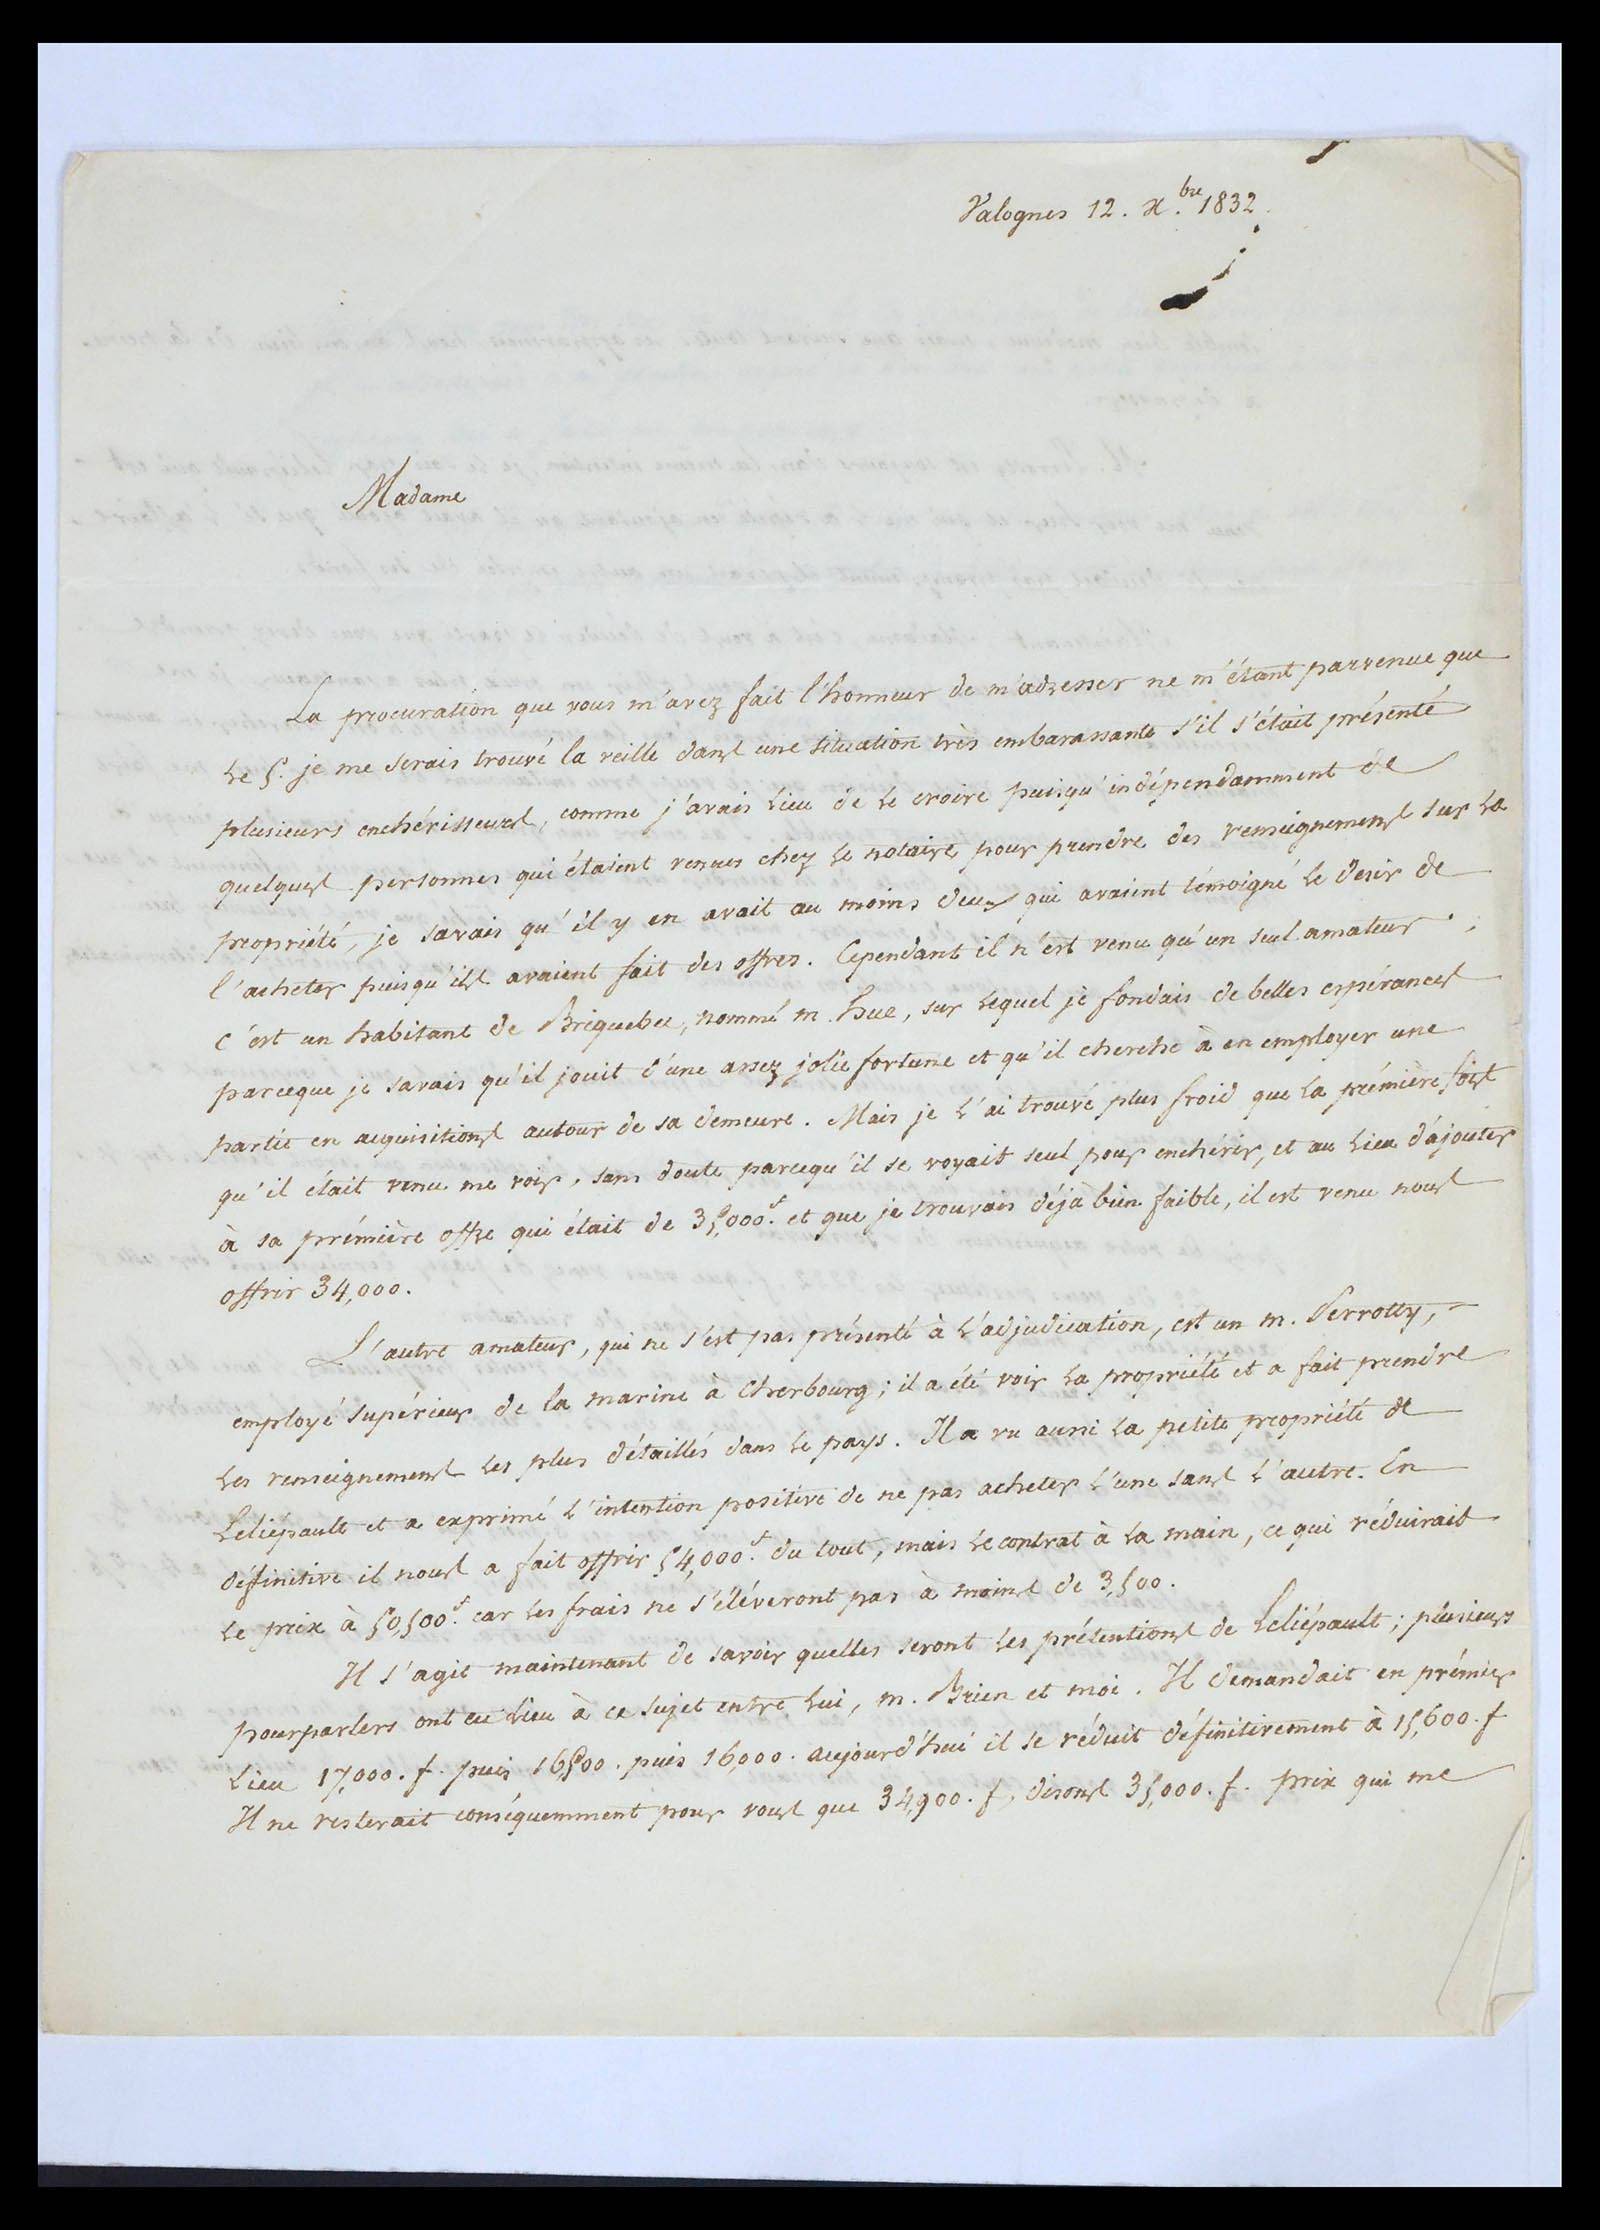 Valognes 12. X.bre 1832.
Madame
La procuration que vous m'avez fait l'honneur de m'adresser ne m'étant parvenue que
le 5. je me serais trouvé la veille dans une situation très embarassante s'il s'était présenté
plusieurs enchérisseurs, comme j'avais lieu de le croire puisqu'indépendamment de
quelques personnes qui étaient venues chez le notaire pour prendre des renseignemens sur la
propriété, je savais qu'il y en avait au moins deux qui avaient témoigné le desir de
l'acheter puisqu'ils avaient fait des offres. Cependant il n'est venu qu'un seul amateur ;
c'est un habitant de Briquebec, nommé m. hue, sur lequel je fondais de belles espérances
parceque je savais qu'il jouit d'une assez jolie fortune et qu'il cherche à en employer une
partie en acquisitions autour de sa demeure. Mais je l'ai trouvé plus froid que la prémière fois
qu'il était venu me voir, sans doute parcequ'il se voyait seul pour enchérir, et au lieu d'ajouter
à sa prémière offre qui était de 35,000.f et que je trouvais déjà bien faible, il est venu nous
offrir 34,000.
L'autre amateur, qui ne s'est pas présenté à l'adjudication, est un m. Perrotty,
employé supérieur de la marine à Cherbourg; il a été voir la propriété et a fait prendre
les renseignemens les plus détaillés dans le pays. Il a vu aussi la petite propriété de
Leliépault et a exprimé l'intention positive de ne pas acheter l'une sans l'autre. En
déffinitive il nous a fait offrir 54,000.f du tout, mais le contrat à la main, ce qui réduirait
le prix à 50,500.f car les frais ne s'éléveront pas à moins de 3,500.
Il s'agit maintenant de savoir quelles seront les prétentions de Leliépault; plusieurs
pourparlers ont eu lieu à ce sujet entre lui, m. Brien et moi. Il demandait en prémier
lieu 17,000. f. puis 16,500. puis 16,000. aujourd'hui il se réduit définitivement à 15,600. f
Il ne resterait conséquemment pour vous que 34,900. f, disons 35,000. f. prix qui me